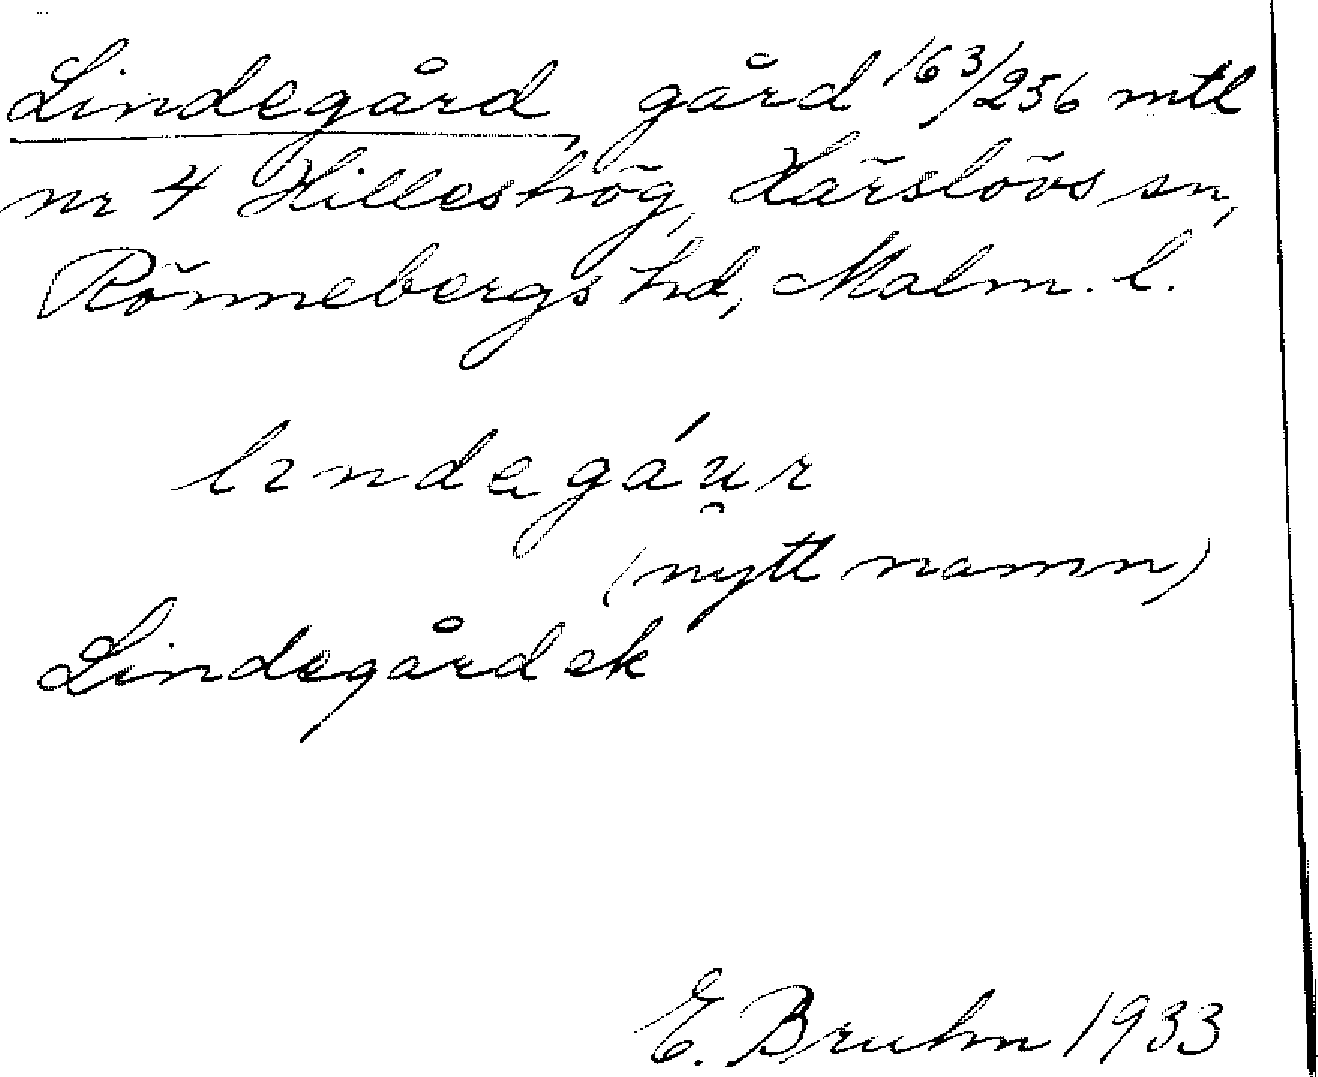 Lindegård gård 163/256 mtl
nr 4 Hilleshög, Härslövs sn,
Rönnebergs hd, Malm. l.
lındagáu̯r
(nytt namn)
Lindegård ek
E. Bruhn 1933